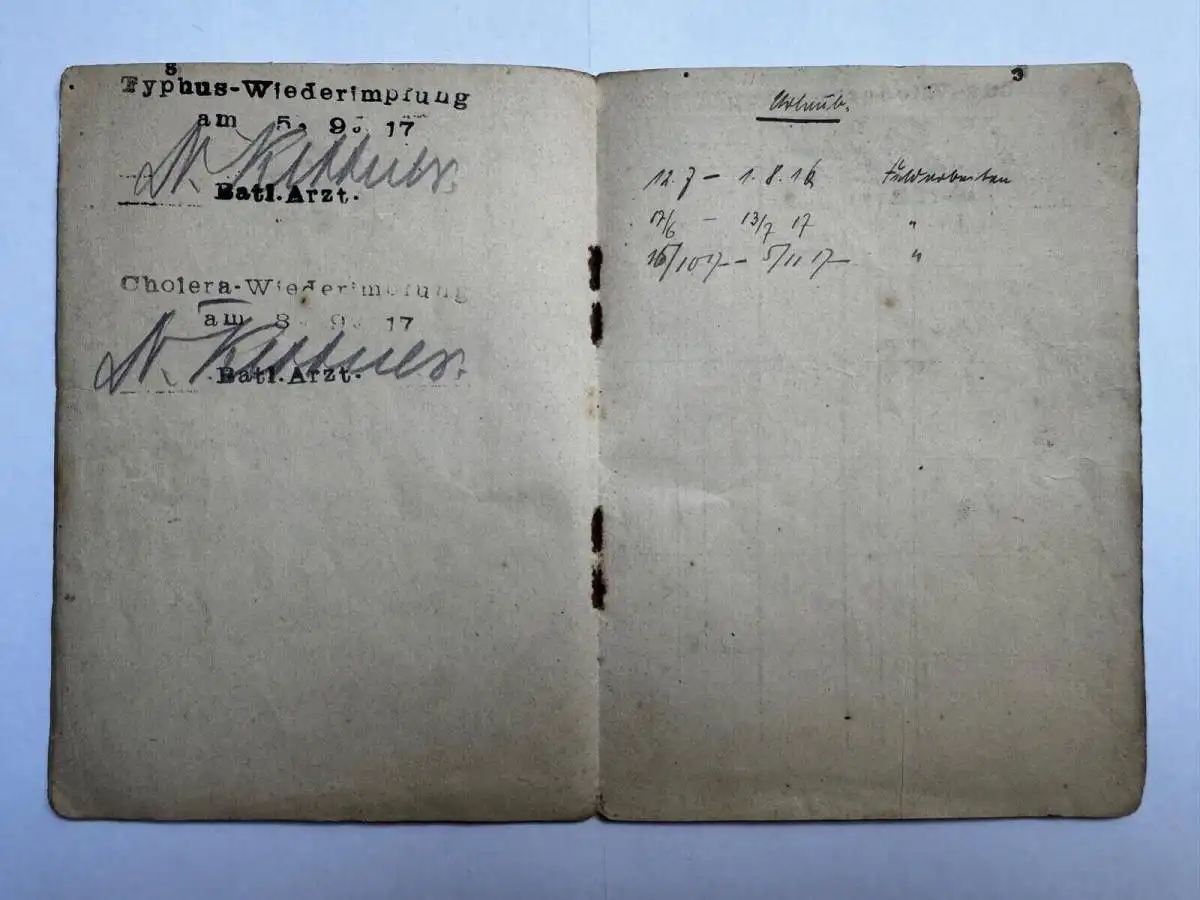 Typhus-Wiederimpfung
am 5. 9. 17
Batl. Arzt.
Cholera-Wiederimpfung
am 8. 9. 17
Batl. Arzt.
3
Urlaub.
12.7 – 1.8.16 Feldarbeiten
17/6 – 13/7 17 "
16/10 17 – 5/11 17 – "